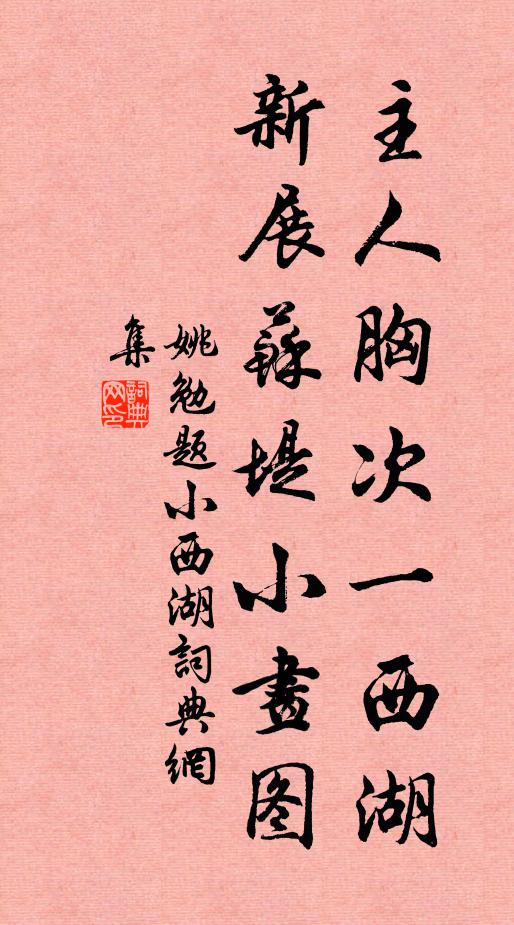 主人胸次一西湖
新展蘇堤小畫图
姚勉題小西湖詞典網
集
詞典網印